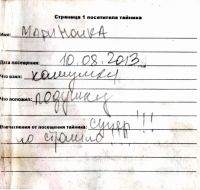 Страница 1 посетителя тайника
Имя: МАРИНОЧКА
Дата посещения: 10.08.2013
Что взял: камушки
Что положил: подушку
Впечатления от посещения тайника: супер!!!
но страшно!!!